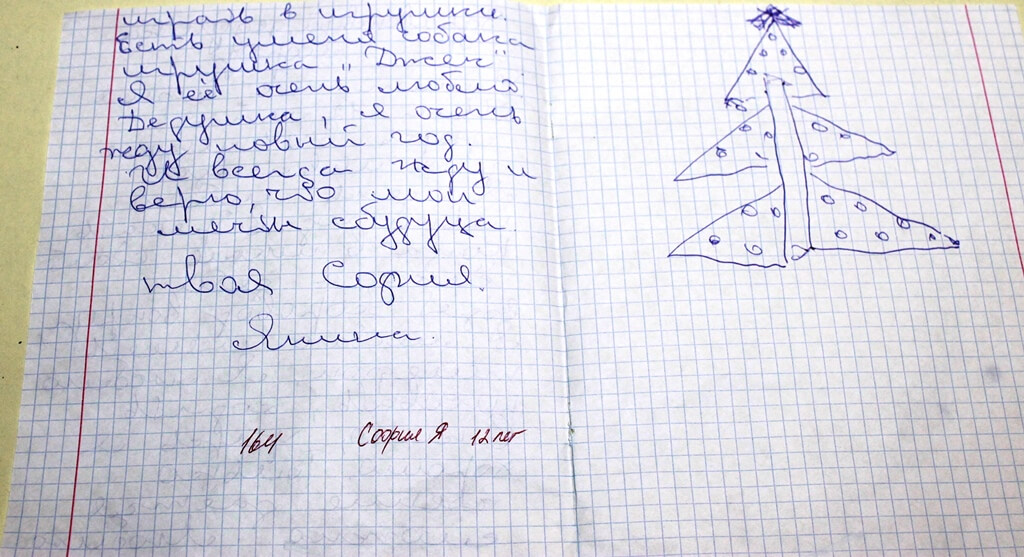 играть в игрушки.
Есть у меня собака
игрушка „Джек".
Я её очень люблю
Дедушка, я очень
жду новий год.
Я всегда жду и
верю, что мои
мечти сбудуца.
твая София.
Янина.
164 София Я 12 лет